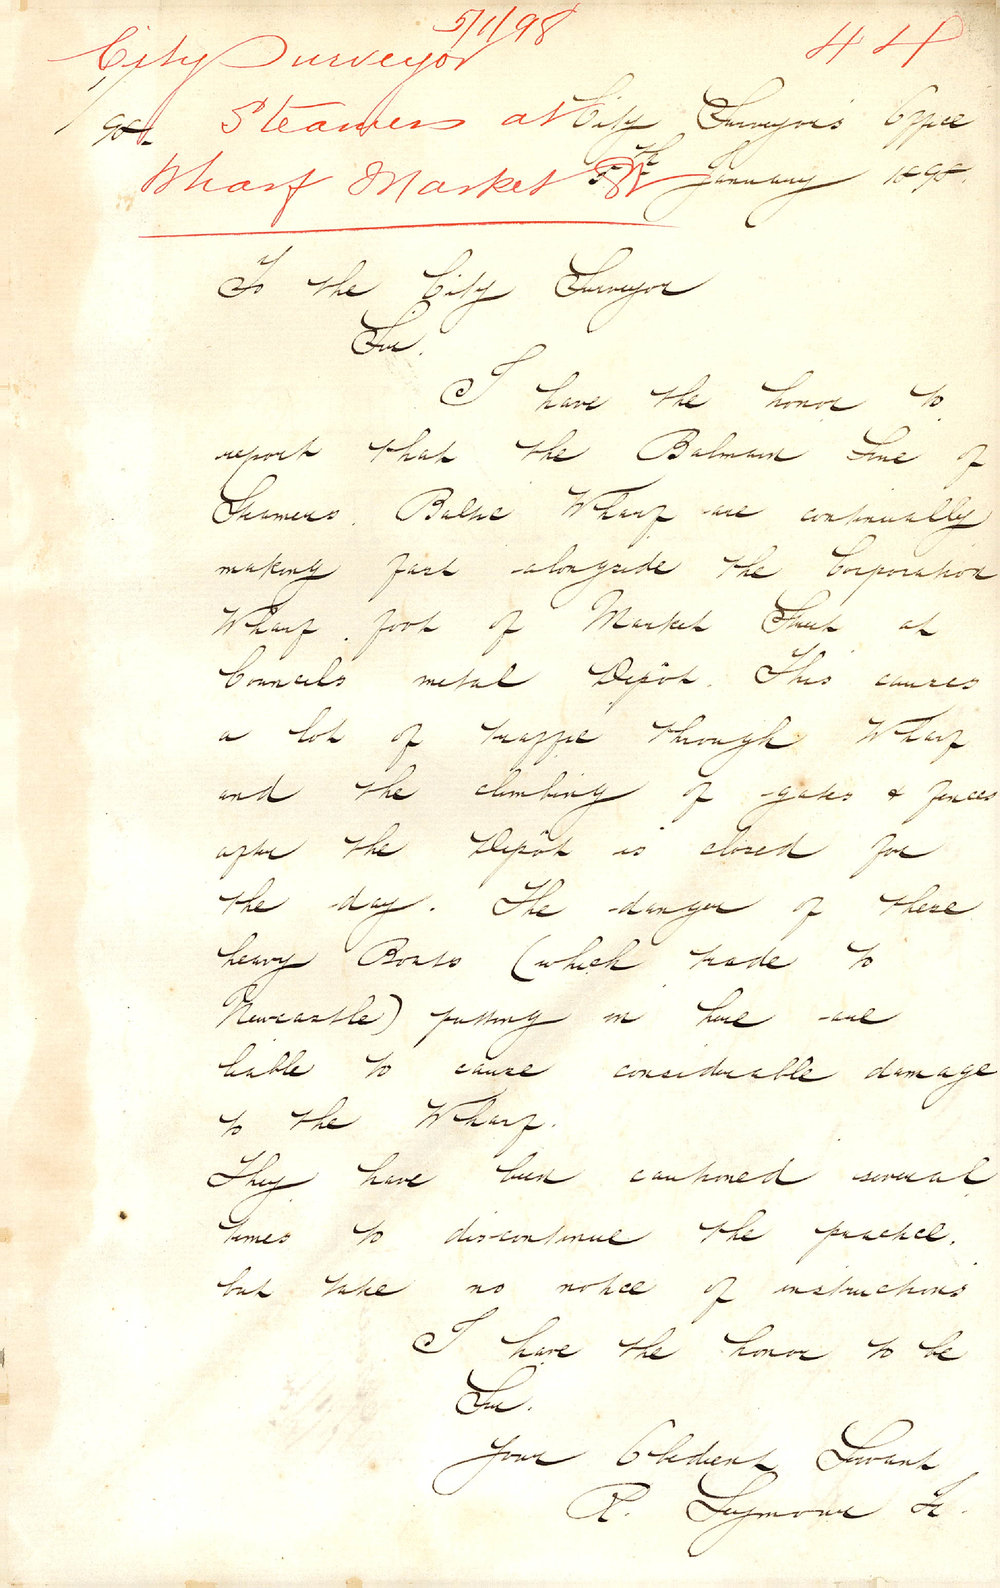 5/1/98
City Surveyor 44
Steamers at City Surveyor's Office
Wharf Market St 5th January 1898.
To the City Surveyor
Sir.
I have the honor to
report that the Balmain Line of
Steamers. Baltic Wharf are continually
making fast alongside the Corporation
Wharf. foot of Market Street at
Councils metal Depôt. This causes
a lot of traffic through Wharf
and the climbing of gates & fences
after the Depôt is closed for
the day. The danger of these
heavy Boats (which trade to
Newcastle) putting in here are
liable to cause considerable damage
to the Wharf.
They have been cautioned several
times to discontinue the practice,
but take no notice of instructions
I have the honor to be
Sir.
Your Obedient Servant
R. Seymour